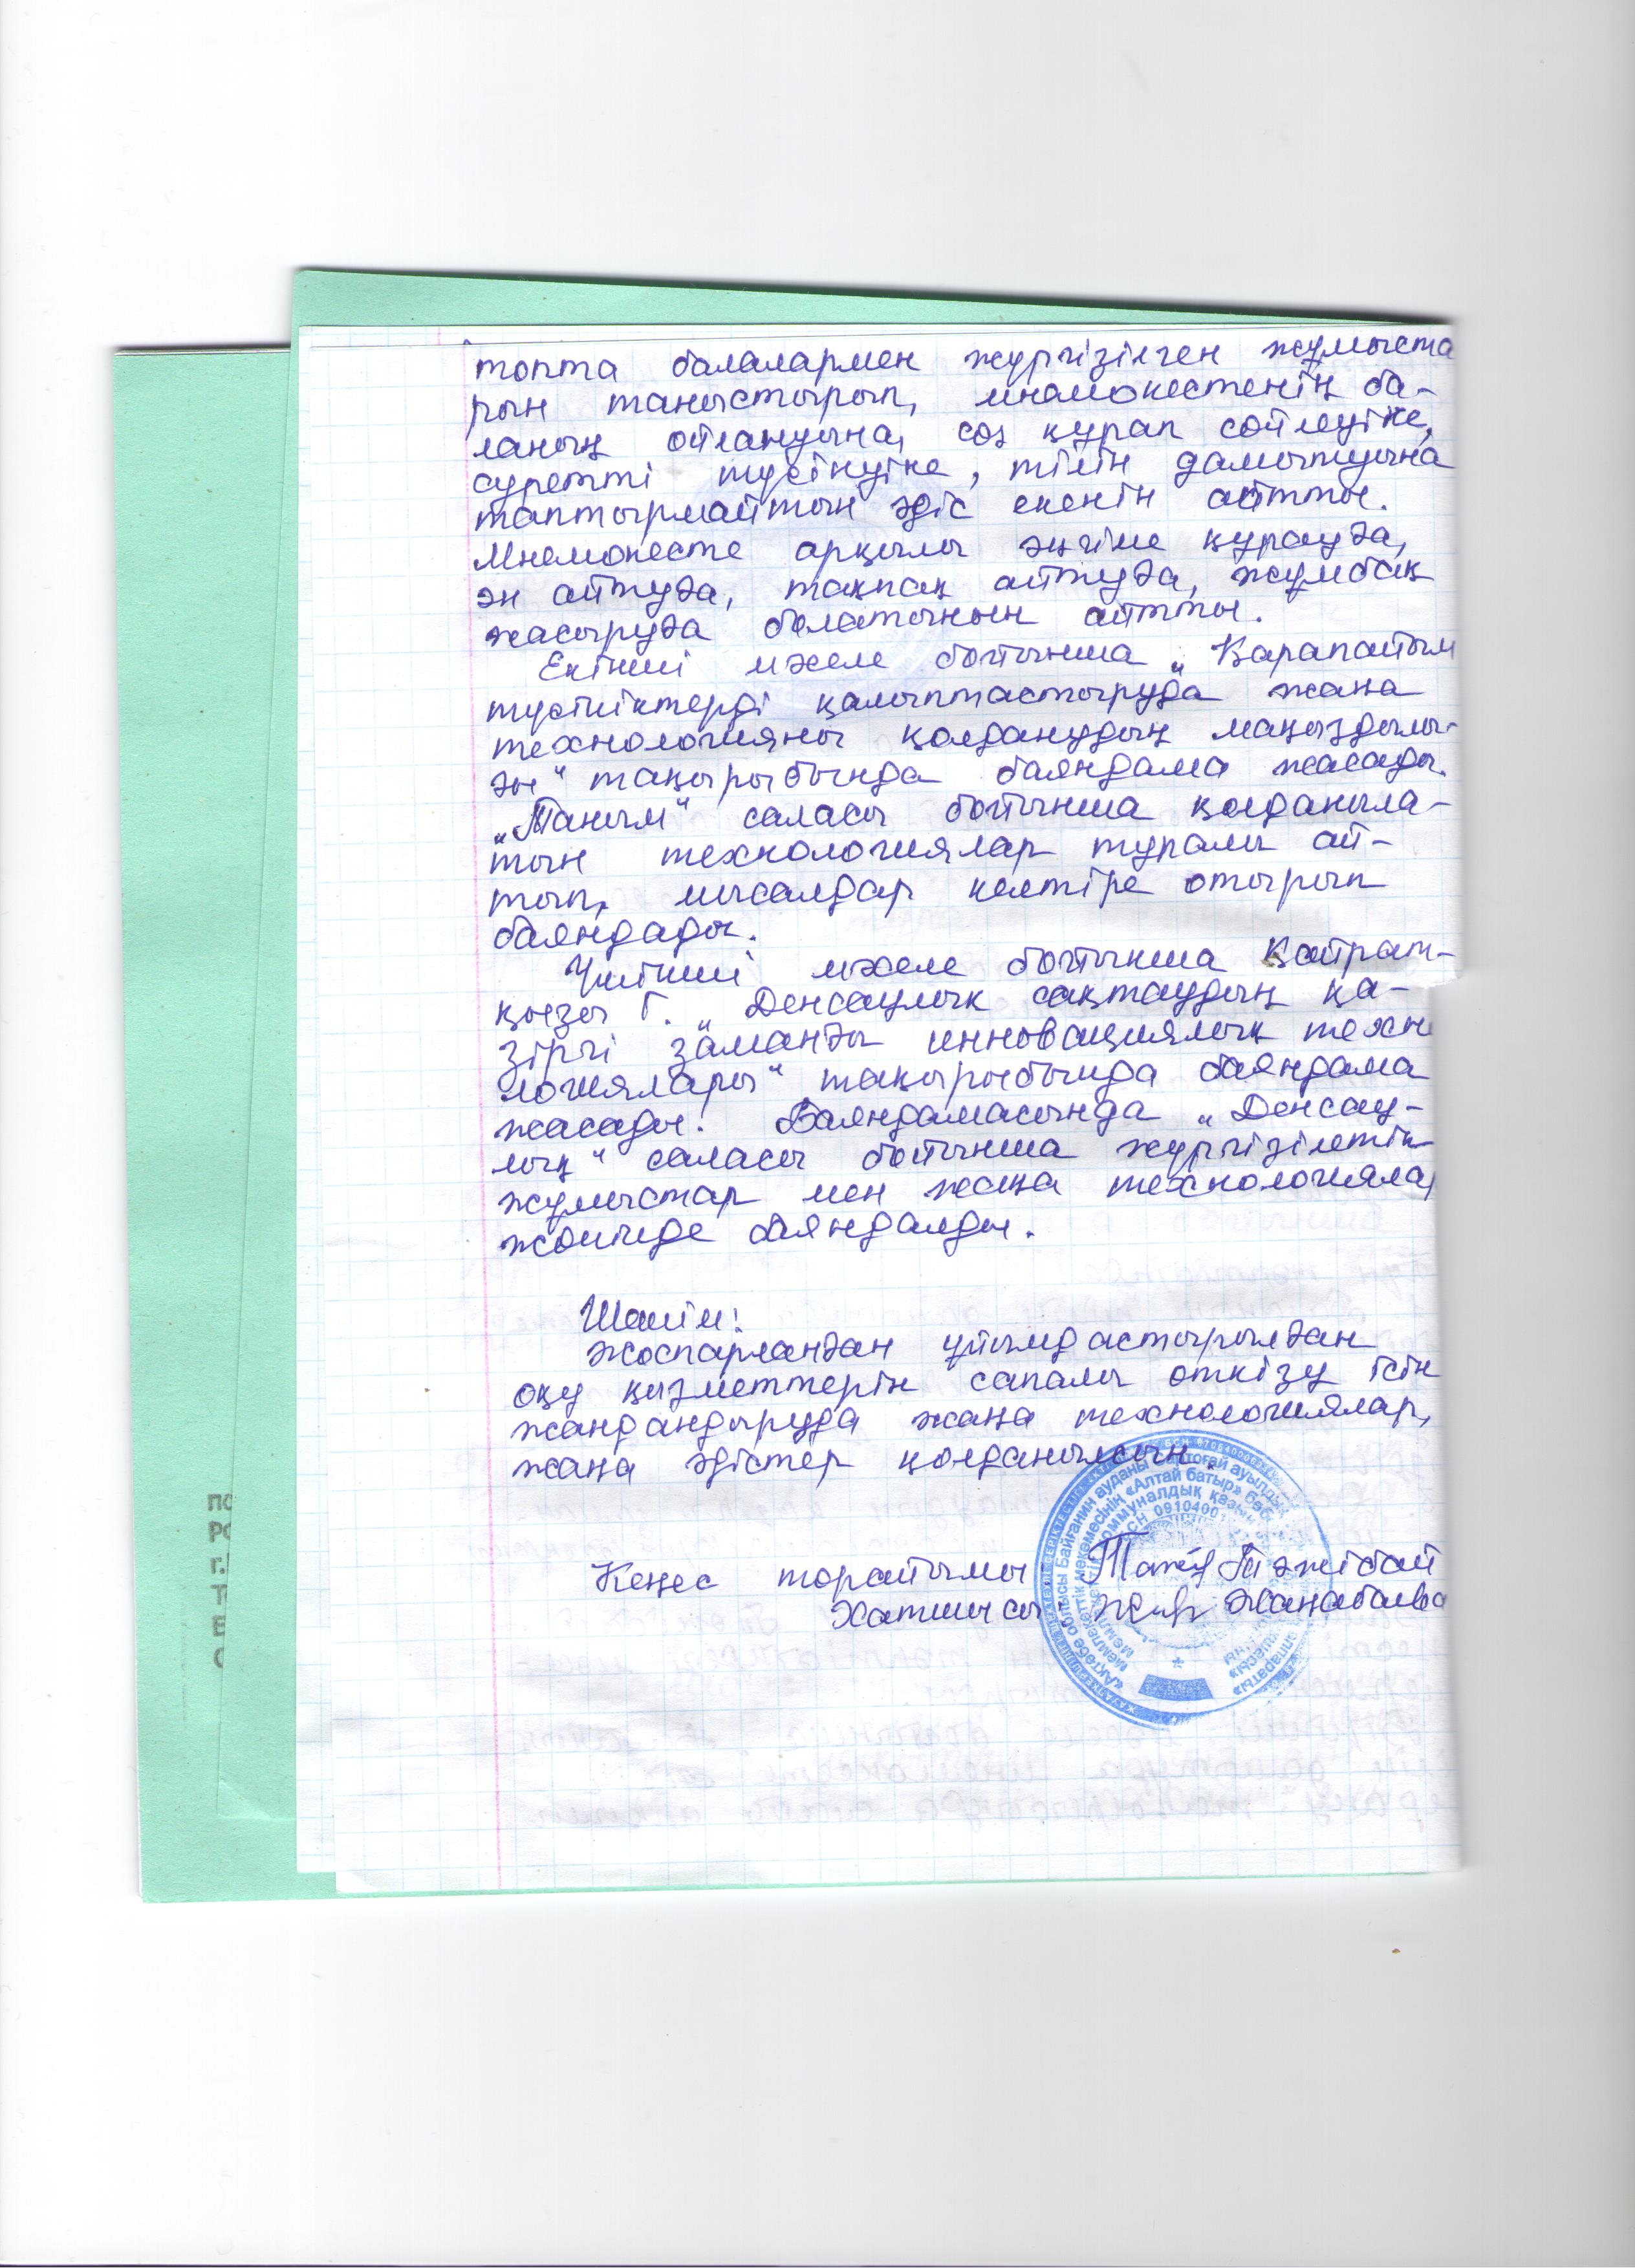 топта балалармен жүргізілген жұмыста
рын таныстырып, мнемокестенің ба-
ланың ойлануына, сөз құрап сөйлеуіне,
суретті түсінуіне, тілін дамытуына
таптырмайтын әдіс екенін айтты.
Мнемокесте арқылы әңгіме құрауға,
ән айтуға, тақпақ айтуға, жұмбақ
жасыруға болатынын айтты.
Екінші мәселе бойынша „Қарапайым
түсініктерді қалыптастыруда жаңа
технологияны қолданудың маңыздылы-
ғы" тақырыбында баяндама жасады.
„Таным" саласы бойынша қолданыла-
тын технологиялар туралы ай-
тып, мысалдар келтіре отырып
баяндады.
Үшінші мәселе бойынша Қайрат-
қызы Г. „Денсаулық сақтаудың қа-
зіргі заманғы инновациялық техн
логиялары" тақырыбында баяндама
жасады. Баяндамасында „Денсау-
лық" саласы бойынша жүргізілетін
жұмыстар мен жаңа технологиялар
жөнінде баяндалды.
Шешім:
Жоспарланған ұйымдастырылған
оқу қызметтерін сапалы өткізу ісін
жандандыруда жаңа технологиялар,
жаңа әдістер қолданылсын.
Кеңес төрайымы: Тәжібай
Хатшысы: Жаңабаева
«Ақтөбе облысы Байғанин ауданы
мемлекеттік мекемесінің «Алтай батыр»
коммуналдық
ПО
РО
г.